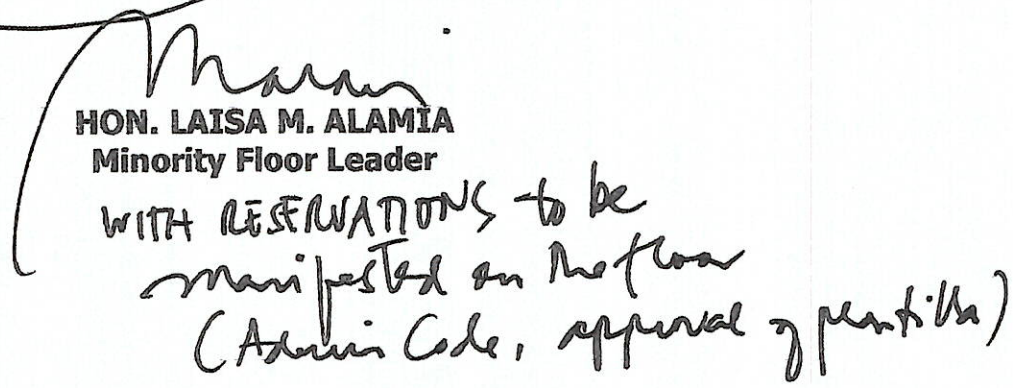 HON. LAISA M. ALAMIA
Minority Floor Leader
WITH RESERVATIONS to be
manifested on the floor
(Admin Code, approval of plantilla)